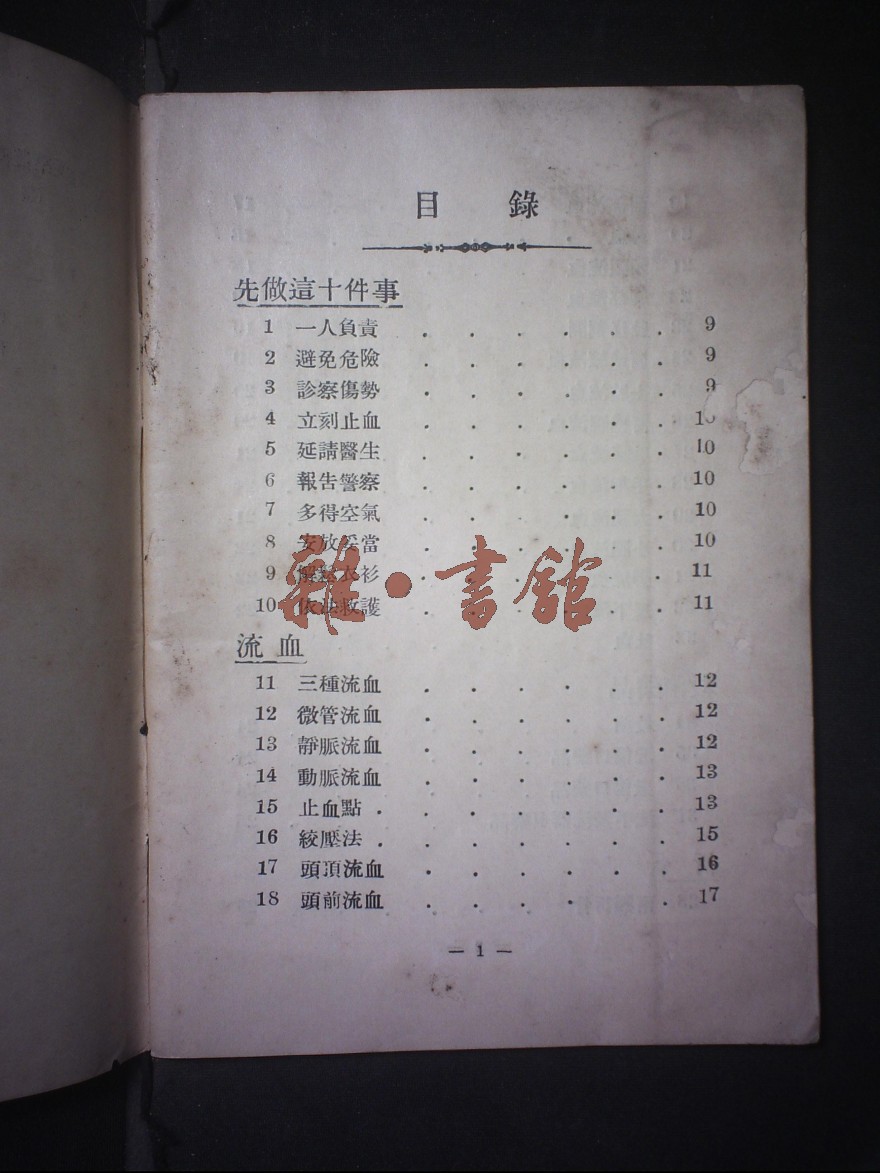 目 錄
先做這十件事
1 一人負責 . . . . . . 9
2 避免危險 . . . . . . 9
3 診察傷勢 . . . . . . 9
4 立刻止血 . . . . . . 10
5 延請醫生 . . . . . . 10
6 報告警察 . . . . . . 10
7 多得空氣 . . . . . . 10
8 安放妥當 . . . . . . 10
9 解鬆衣衫 . . . . . . 11
10 依法救護 . . . . . . 11
雜·書館
流血
11 三種流血 . . . . . . 12
12 微管流血 . . . . . . 12
13 靜脈流血 . . . . . . 12
14 動脈流血 . . . . . . 13
15 止血點 . . . . . . . 13
16 絞壓法 . . . . . . . 15
17 頭頂流血 . . . . . . 16
18 頭前流血 . . . . . . 17
— 1 —